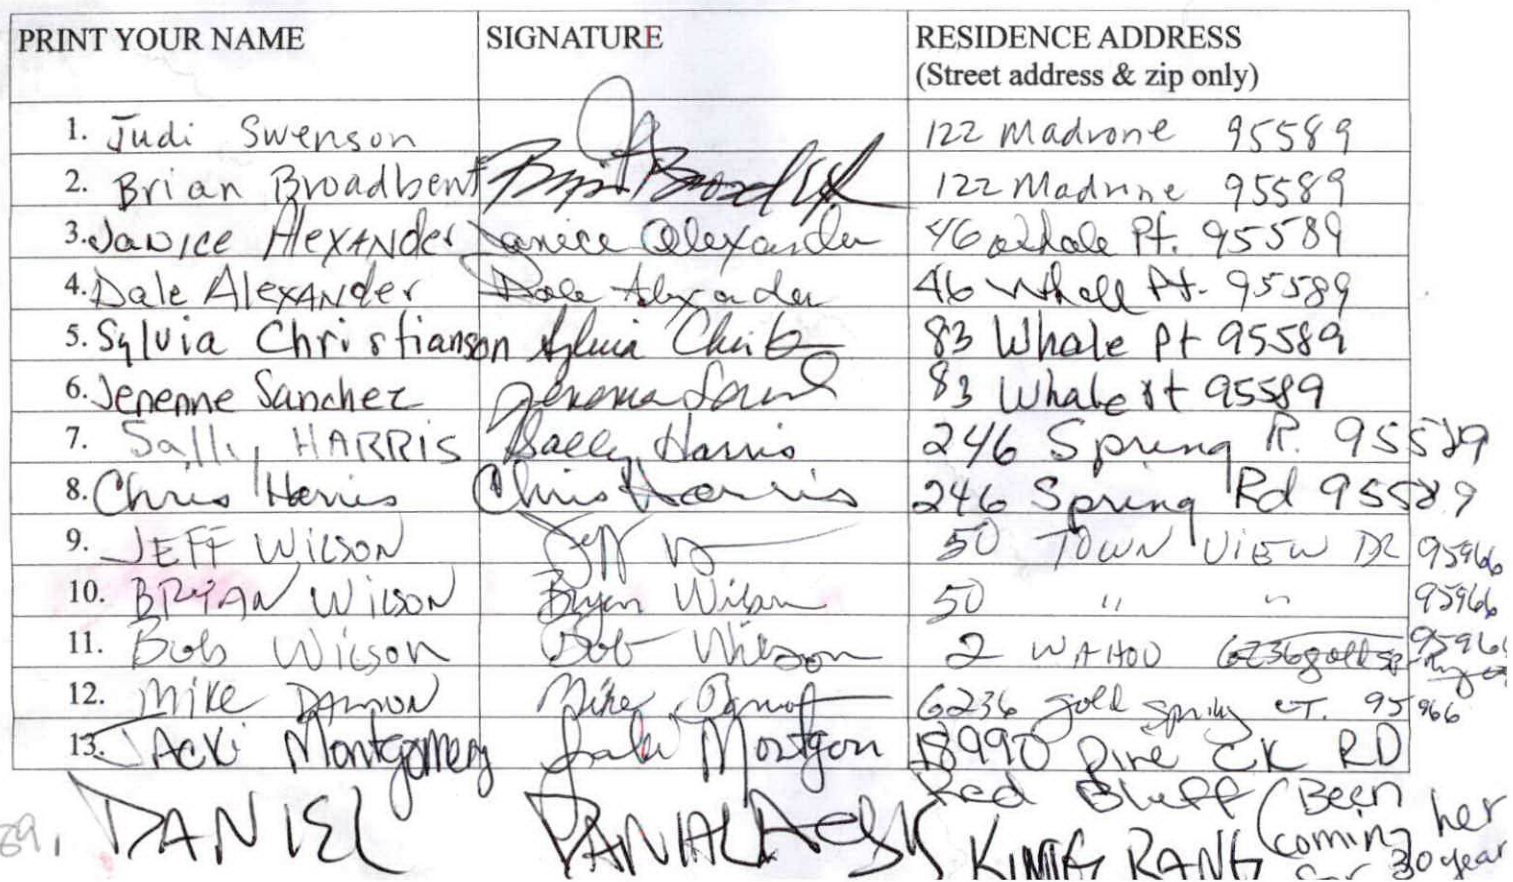 PRINT YOUR NAME SIGNATURE RESIDENCE ADDRESS
(Street address & zip only)
1. Judi Swenson 122 Madrone 95589
2. Brian Broadbent 122 Madrone 95589
3. Janice Alexander Janice Alexander 46 Whale Pt. 95589
4. Dale Alexander Dale Alexander 46 Whale Pt. 95589
5. Sylvia Christianson Sylvia 83 Whale Pt 95589
6. Jenenne Sanchez 83 Whale Pt 95589
7. Sally HARRIS Sally Harris 246 Spring R. 95589
8. Chris Harris Chris Harris 246 Spring Rd 95589
9. JEFF WILSON Jeff 50 TOWN VIEW DR 95966
10. BRYAN WILSON Bryan Wilson 50 " " 95966
11. Bob Wilson Bob Wilson 2 WAHOO 6236 gold 95966
12. Mike DAMON Mike 6236 gold spring CT. 95966
13. JACKi Montgomery 18990 Pine CK RD
Red Bluff (Been
coming her
for 30 year
89. DANIEL KING RANG